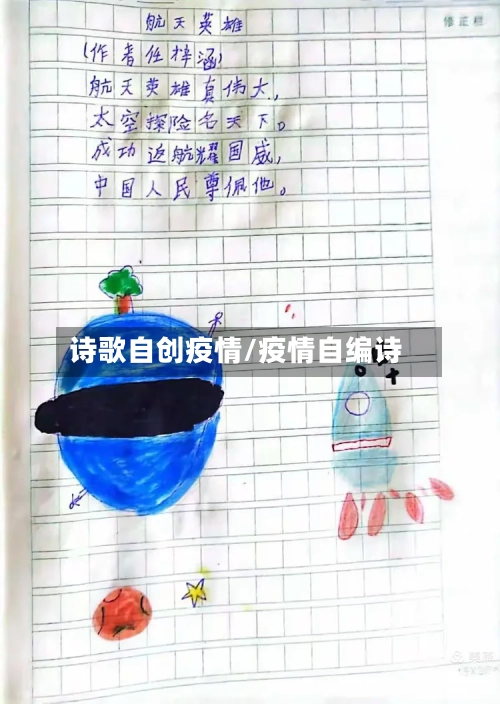 航天英雄
修正栏
(作者任梓涵)
航天英雄真伟大,
太空探险名天下。
成功返航耀国威,
中国人民尊佩他。
诗歌自创疫情/疫情自编诗